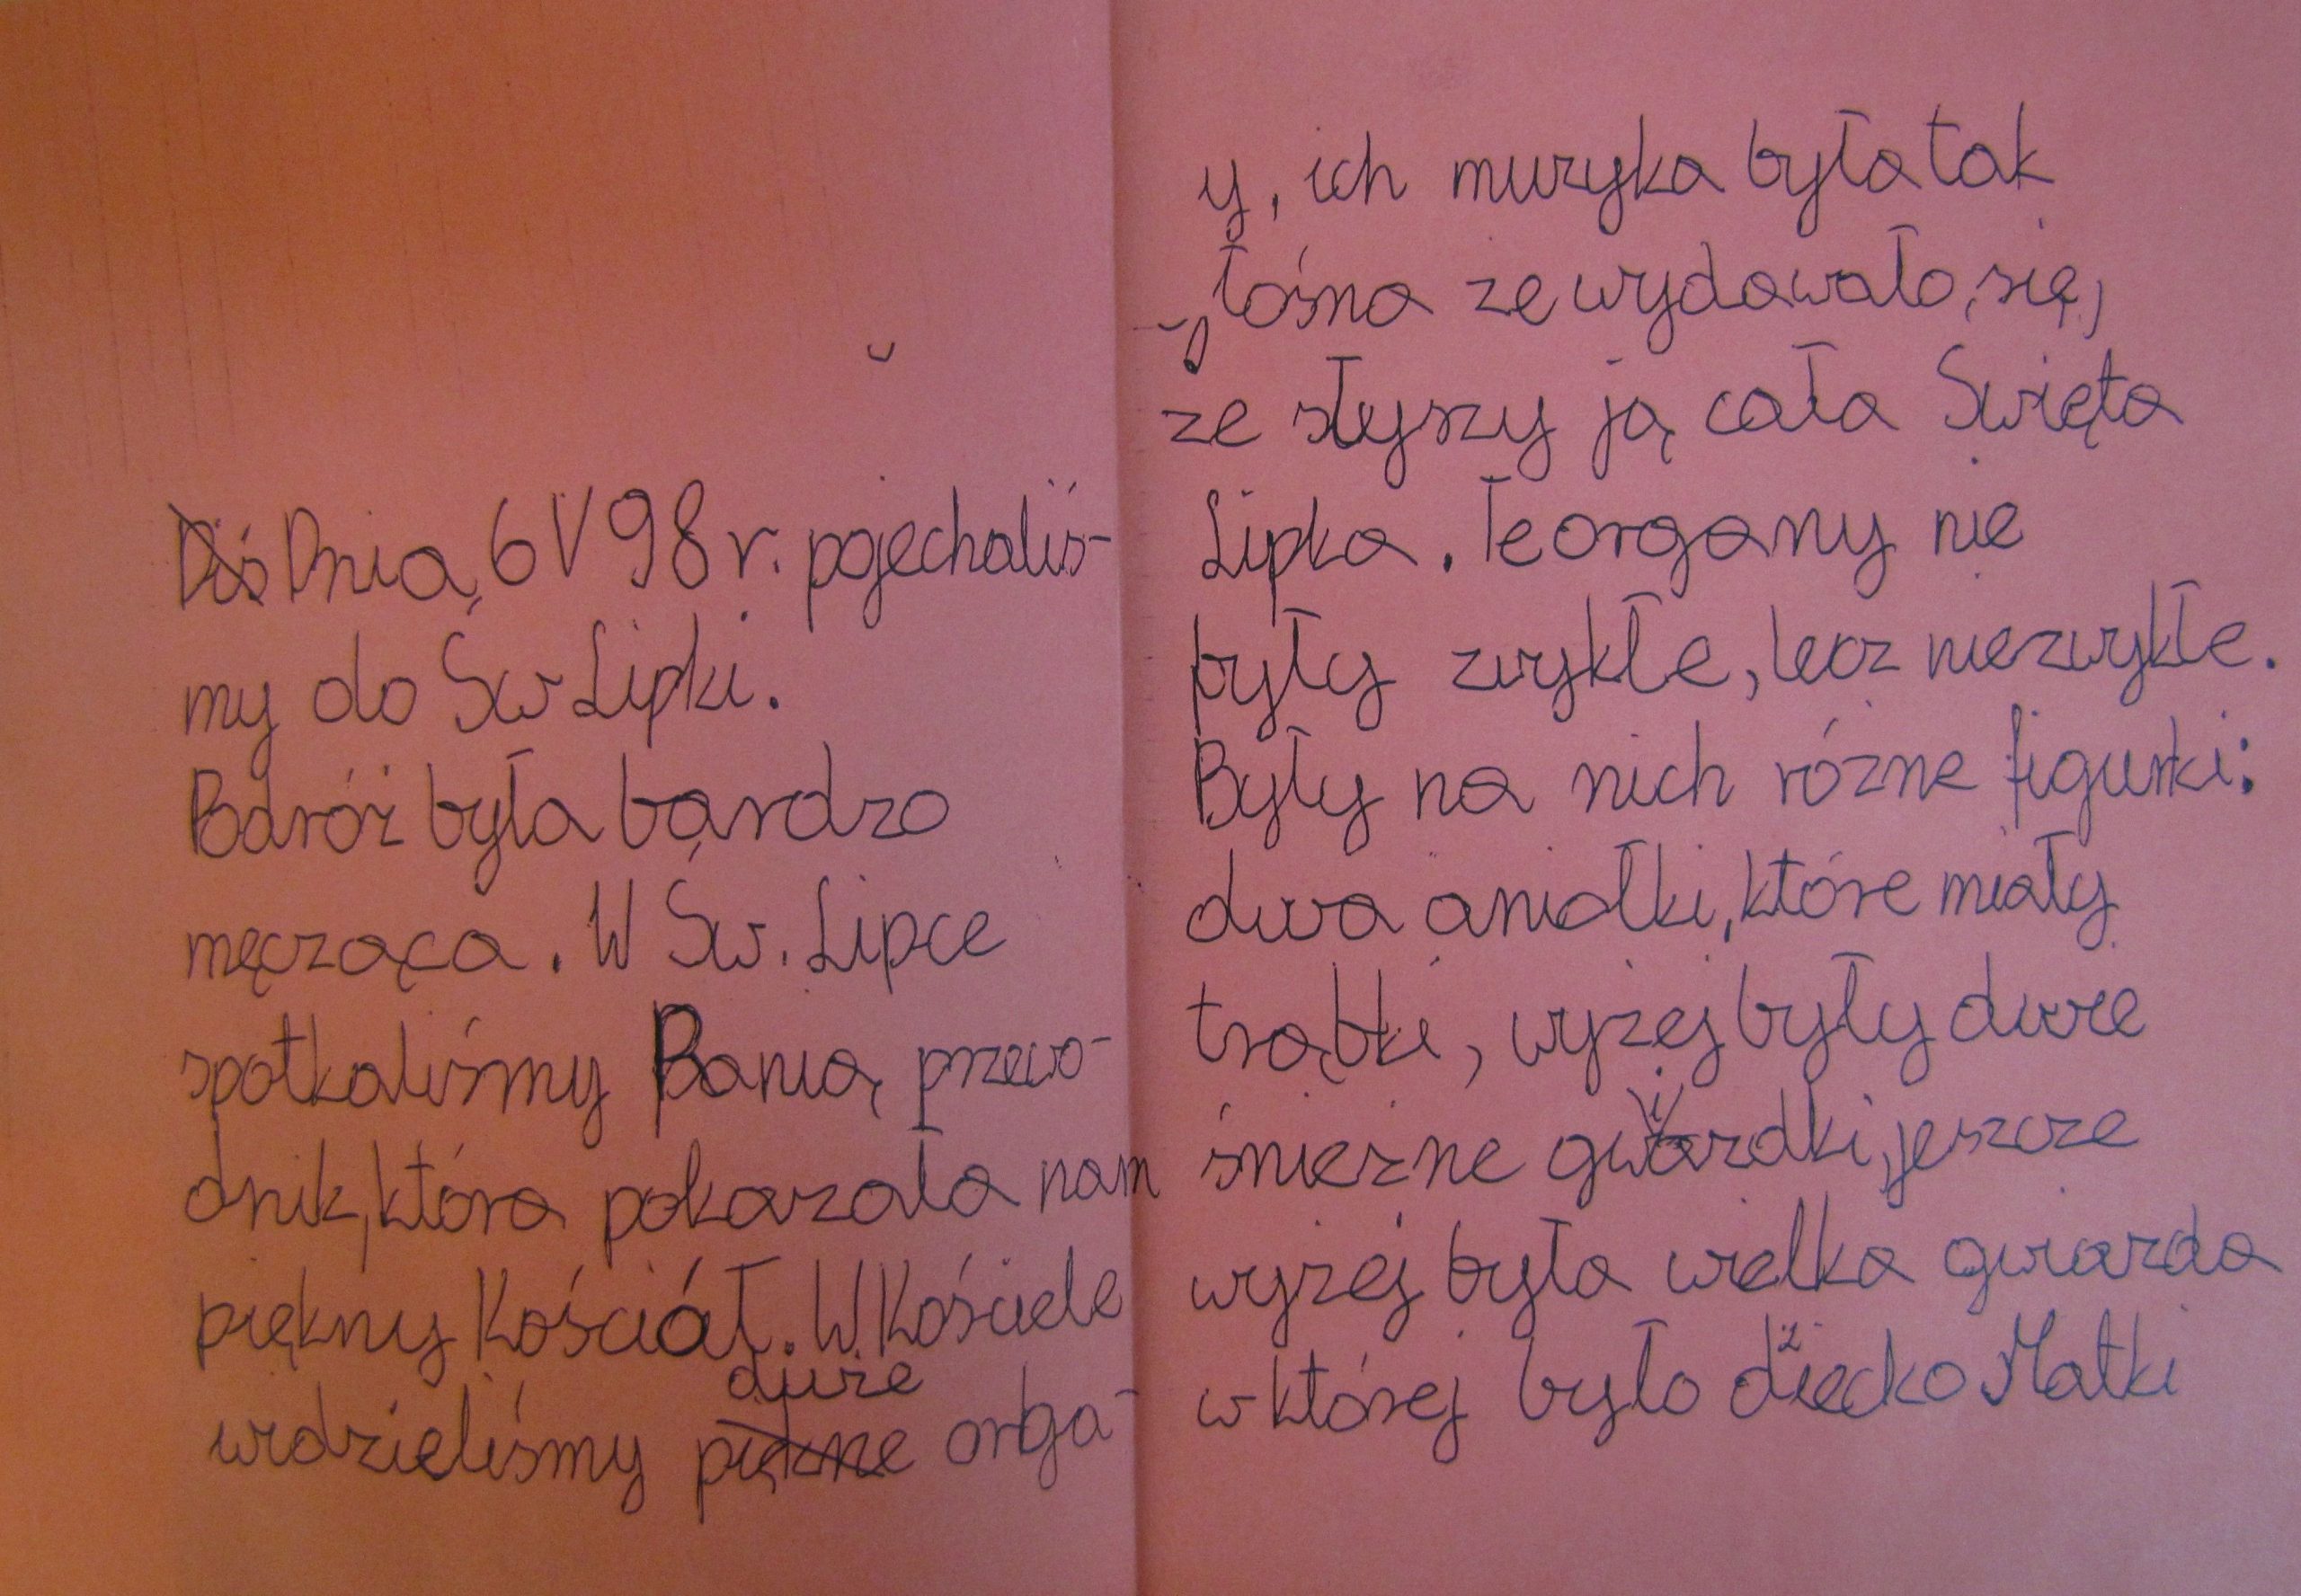 Diś Dnia, 6 V 98 r. pojechaliś-
my do Św Lipki.
Podróż była bardzo
męcząca. W Św. Lipce
spotkaliśmy Panią, przewo-
dnik, która pokazała nam
piękny Kościół. W Kościele
duże
widzieliśmy piękne orga-
y, ich muzyka była tak
głośna ze wydawało, się,
ze słyszy ją cała Swięta
Lipka. Te organy nie
były zwykłe, lecz niezwykłe.
Były na nich rózne figurki:
dwa aniołki, które miały
trąbki, wyzej były dwie
śniezne gwiazdki, jeszcze
wyzej była wielka gwiazda
w której było dziecko Matki